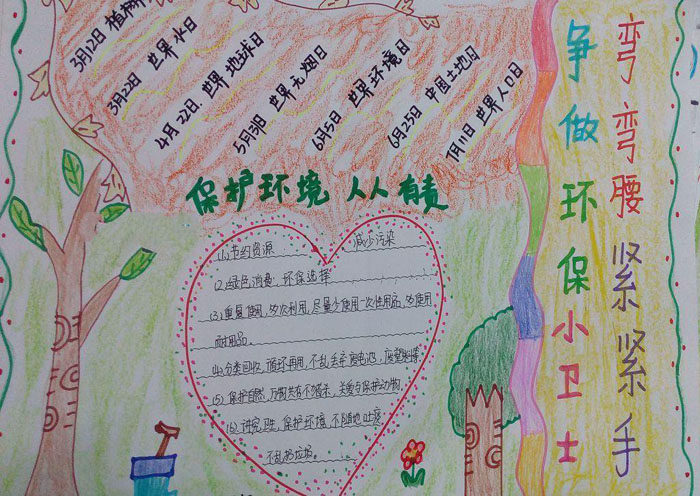 3月12日 植树节
3月22日 世界水日
4月22日 世界地球日
5月31日 世界无烟日
6月5日 世界环境日
6月25日 中国土地日
7月11日 世界人口日
保护环境 人人有责
(1)节约资源 减少污染
(2)绿色消费,环保选择
(3)重复使用,多次利用,尽量少使用一次性用品,多使用
耐用品。
(4)分类回收,循环再用,不乱丢弃废电池,废塑料等
(5)保护自然,万物共有 关爱与保护动物
(6)讲究卫生,保护环境,不随地吐痰
不乱扔垃圾。
弯弯腰紧紧手
争做环保小卫士